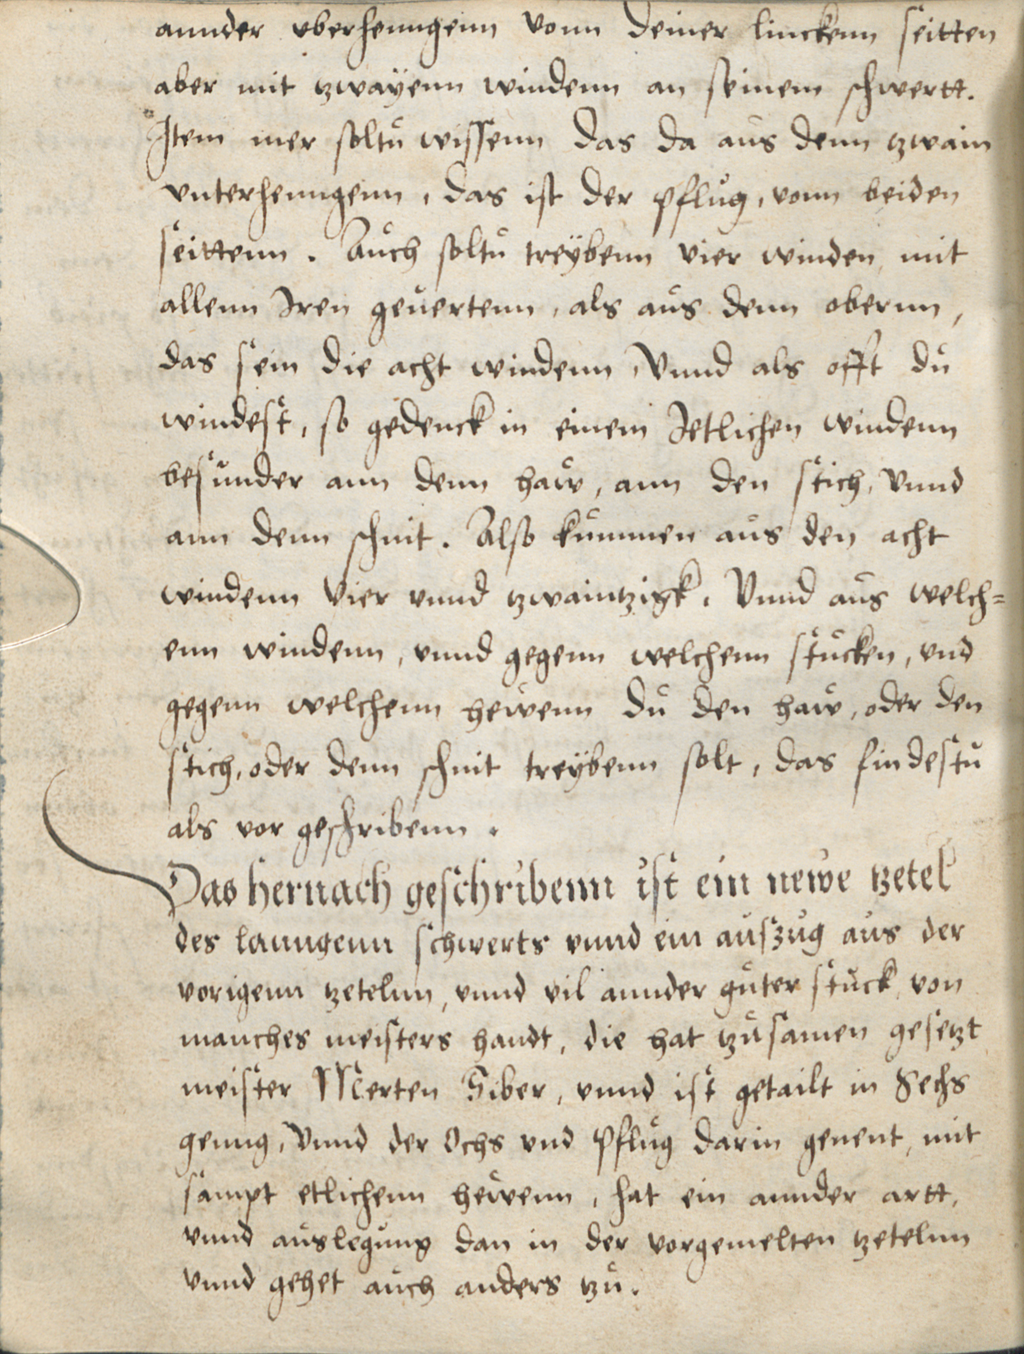 annder vberhenngenn vonn deiner linckenn seitten
aber mit tzwayenn windenn an seinem schwertt.
Item mer soltu wissenn das da aus denn tzwain
vnterhenngenn, das ist der pflug, vonn beiden
seittenn. Auch soltu treybenn vier winden mit
allenn Iren geuertenn, als aus denn obernn,
das sein die acht windenn, Vnnd als offt du
windest, so gedenck in einem Ietlichen windenn
besunder ann denn haw, ann den stich, vnnd
ann denn schnit. Also kummen aus den acht
windenn vier vnnd tzwaintzigk. Vnnd aus welch=
enn windenn, vnnd gegenn welchenn stucken, vnd
gegenn welchenn hewenn du den haw, oder den
stich, oder denn schnit treybenn solt, das findestu
als vor geschribenn.
Das hernach geschribenn ist ein newe tzetel
des lanngenn schwerts vnnd ein auszug aus der
vorigenn tzetelnn, vnnd vil annder guter stuck von
manches meisters handt, die hat tzusamen gesetzt
meister Merten Siber, vnnd ist getailt in Sechs
genng, Vnnd der Ochs vnd Pflug darin genent, mit
sampt etlichenn hewenn, hat ein annder artt,
vnnd auslegung dan in der vorgemelten tzetelnn
vnnd gehet auch anders tzu.